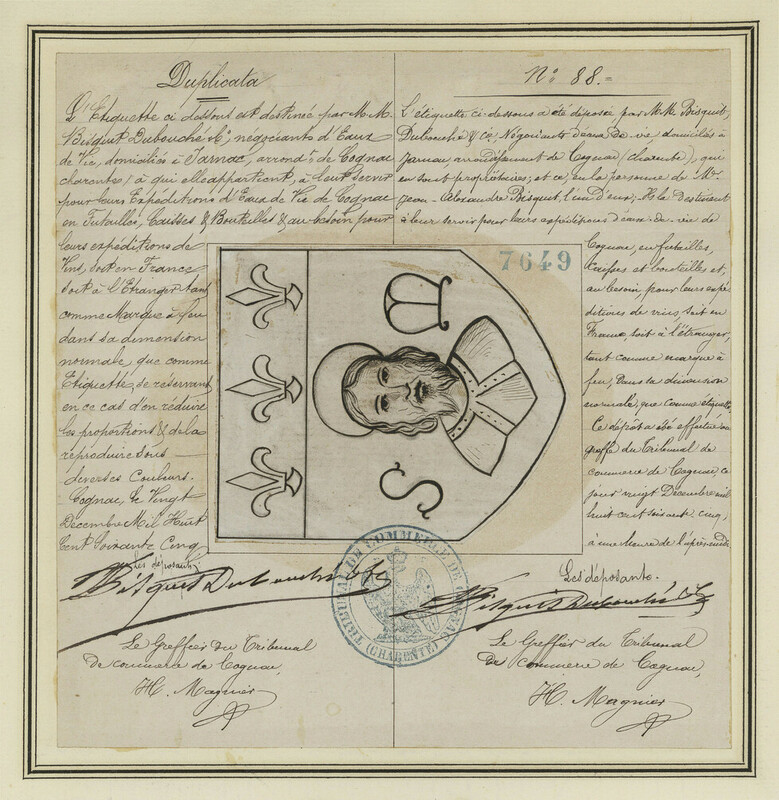 Duplicata
L'Etiquette ci dessous est destinée par M.M.
Bisquit Dubouché & Cie, négociants d'Eaux
de Vie, domiciliés à Jarnac, arrondt. de Cognac
charente, à qui elle appartient, à leur servir
pour leurs Expéditions d'Eaux de Vie de Cognac
en Futailles, Caisses & Bouteilles & au besoin pour
leurs expéditions de
Vins, soit en France
soit à l'Etranger tant
comme Marque à feu
dans sa dimension
normale, que comme
Etiquette, se réservant
en ce cas d'en réduire
les proportions & de la
reproduire sous
diverses Couleurs.
Cognac, le Vingt
Décembre Mil Huit
Cent Soixante Cinq
Les déposants
Bisquit Dubouché & Cie
Le Greffier du Tribunal
de commerce de Cognac,
H. Magnier
No 88.=
L'étiquette ci-dessous a été déposée par M.M. Bisquit,
Dubouché & Cie Négociants d'eaux-de-vie domiciliés à
Jarnac arrondissement de Cognac (charente), qui
en sont propriétaires; et ce, en la personne de Mr.
Jean-Alexandre Bisquit, l'un d'eux; Ils la destinent
à leur servir pour leurs expéditions d'eaux-de-vie de
Cognac, en futailles,
caisses et bouteilles et,
au besoin, pour leurs expé-
ditions de vins, soit en
France, soit à l'étranger,
tant comme marque à
feu, dans sa dimension
normale, que comme étiquette.
Ce dépôt a été effectué au
greffe du Tribunal de
commerce de Cognac, ce
jour vingt Décembre mil
huit cent soixante cinq,
à une heure de l'après-midi
Les déposants.
Bisquit Dubouché & Cie
Le Greffier du Tribunal
de commerce de Cognac,
H. Magnier
7649
S
TRIBUNAL DE COMMERCE DE COGNAC
(CHARENTE)